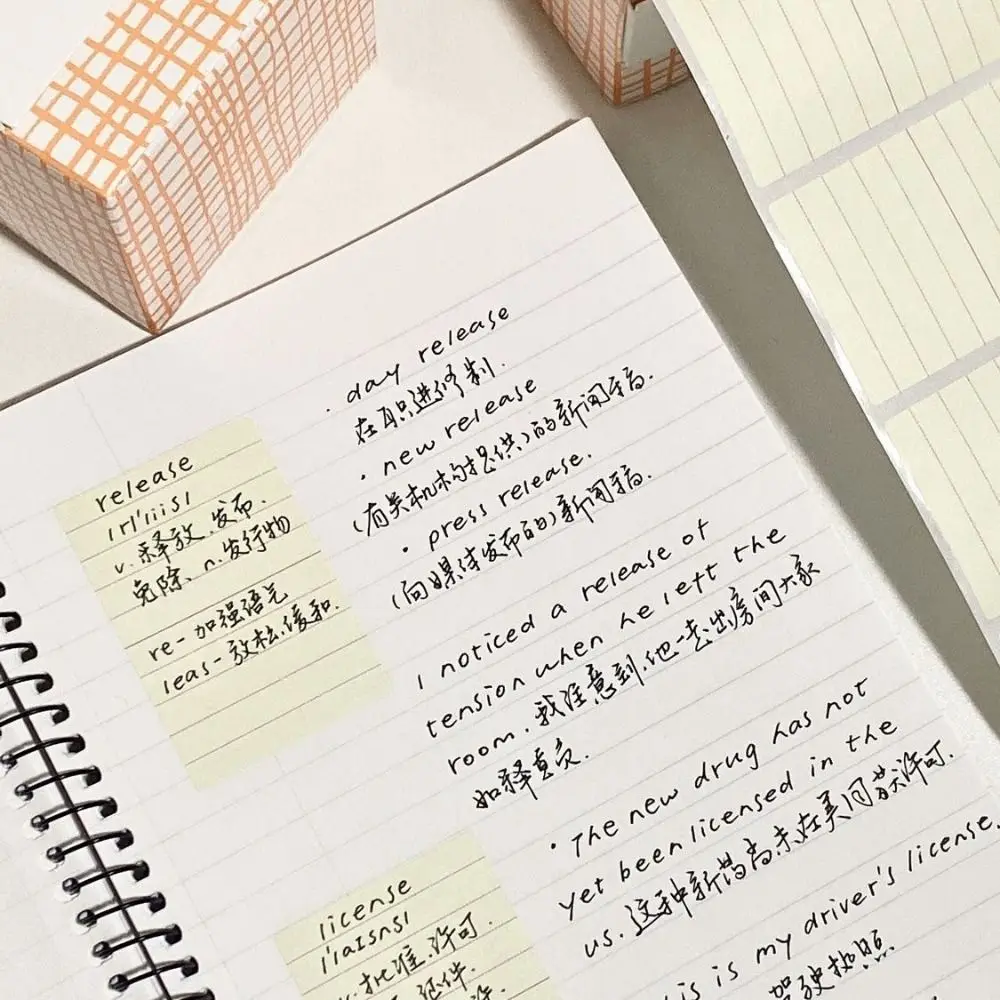 release
/rɪ'liːs/
v. 释放、发布.
免除、n. 发行物
re- 加强语气
leas- 放松、缓和.
· day release
在职进修制.
· new release
(有关机构提供)的新闻稿.
· press release.
(向媒体发布的)新闻稿.
I noticed a release of
tension when he left the
room. 我注意到,他一走出房间大家
如释重负.
license
/'laɪsns/
v. 批准、许可.
证件.
· The new drug has not
yet been licensed in the
us. 这种新药尚未在美国获许可.
is is my driver's license.
驾驶执照